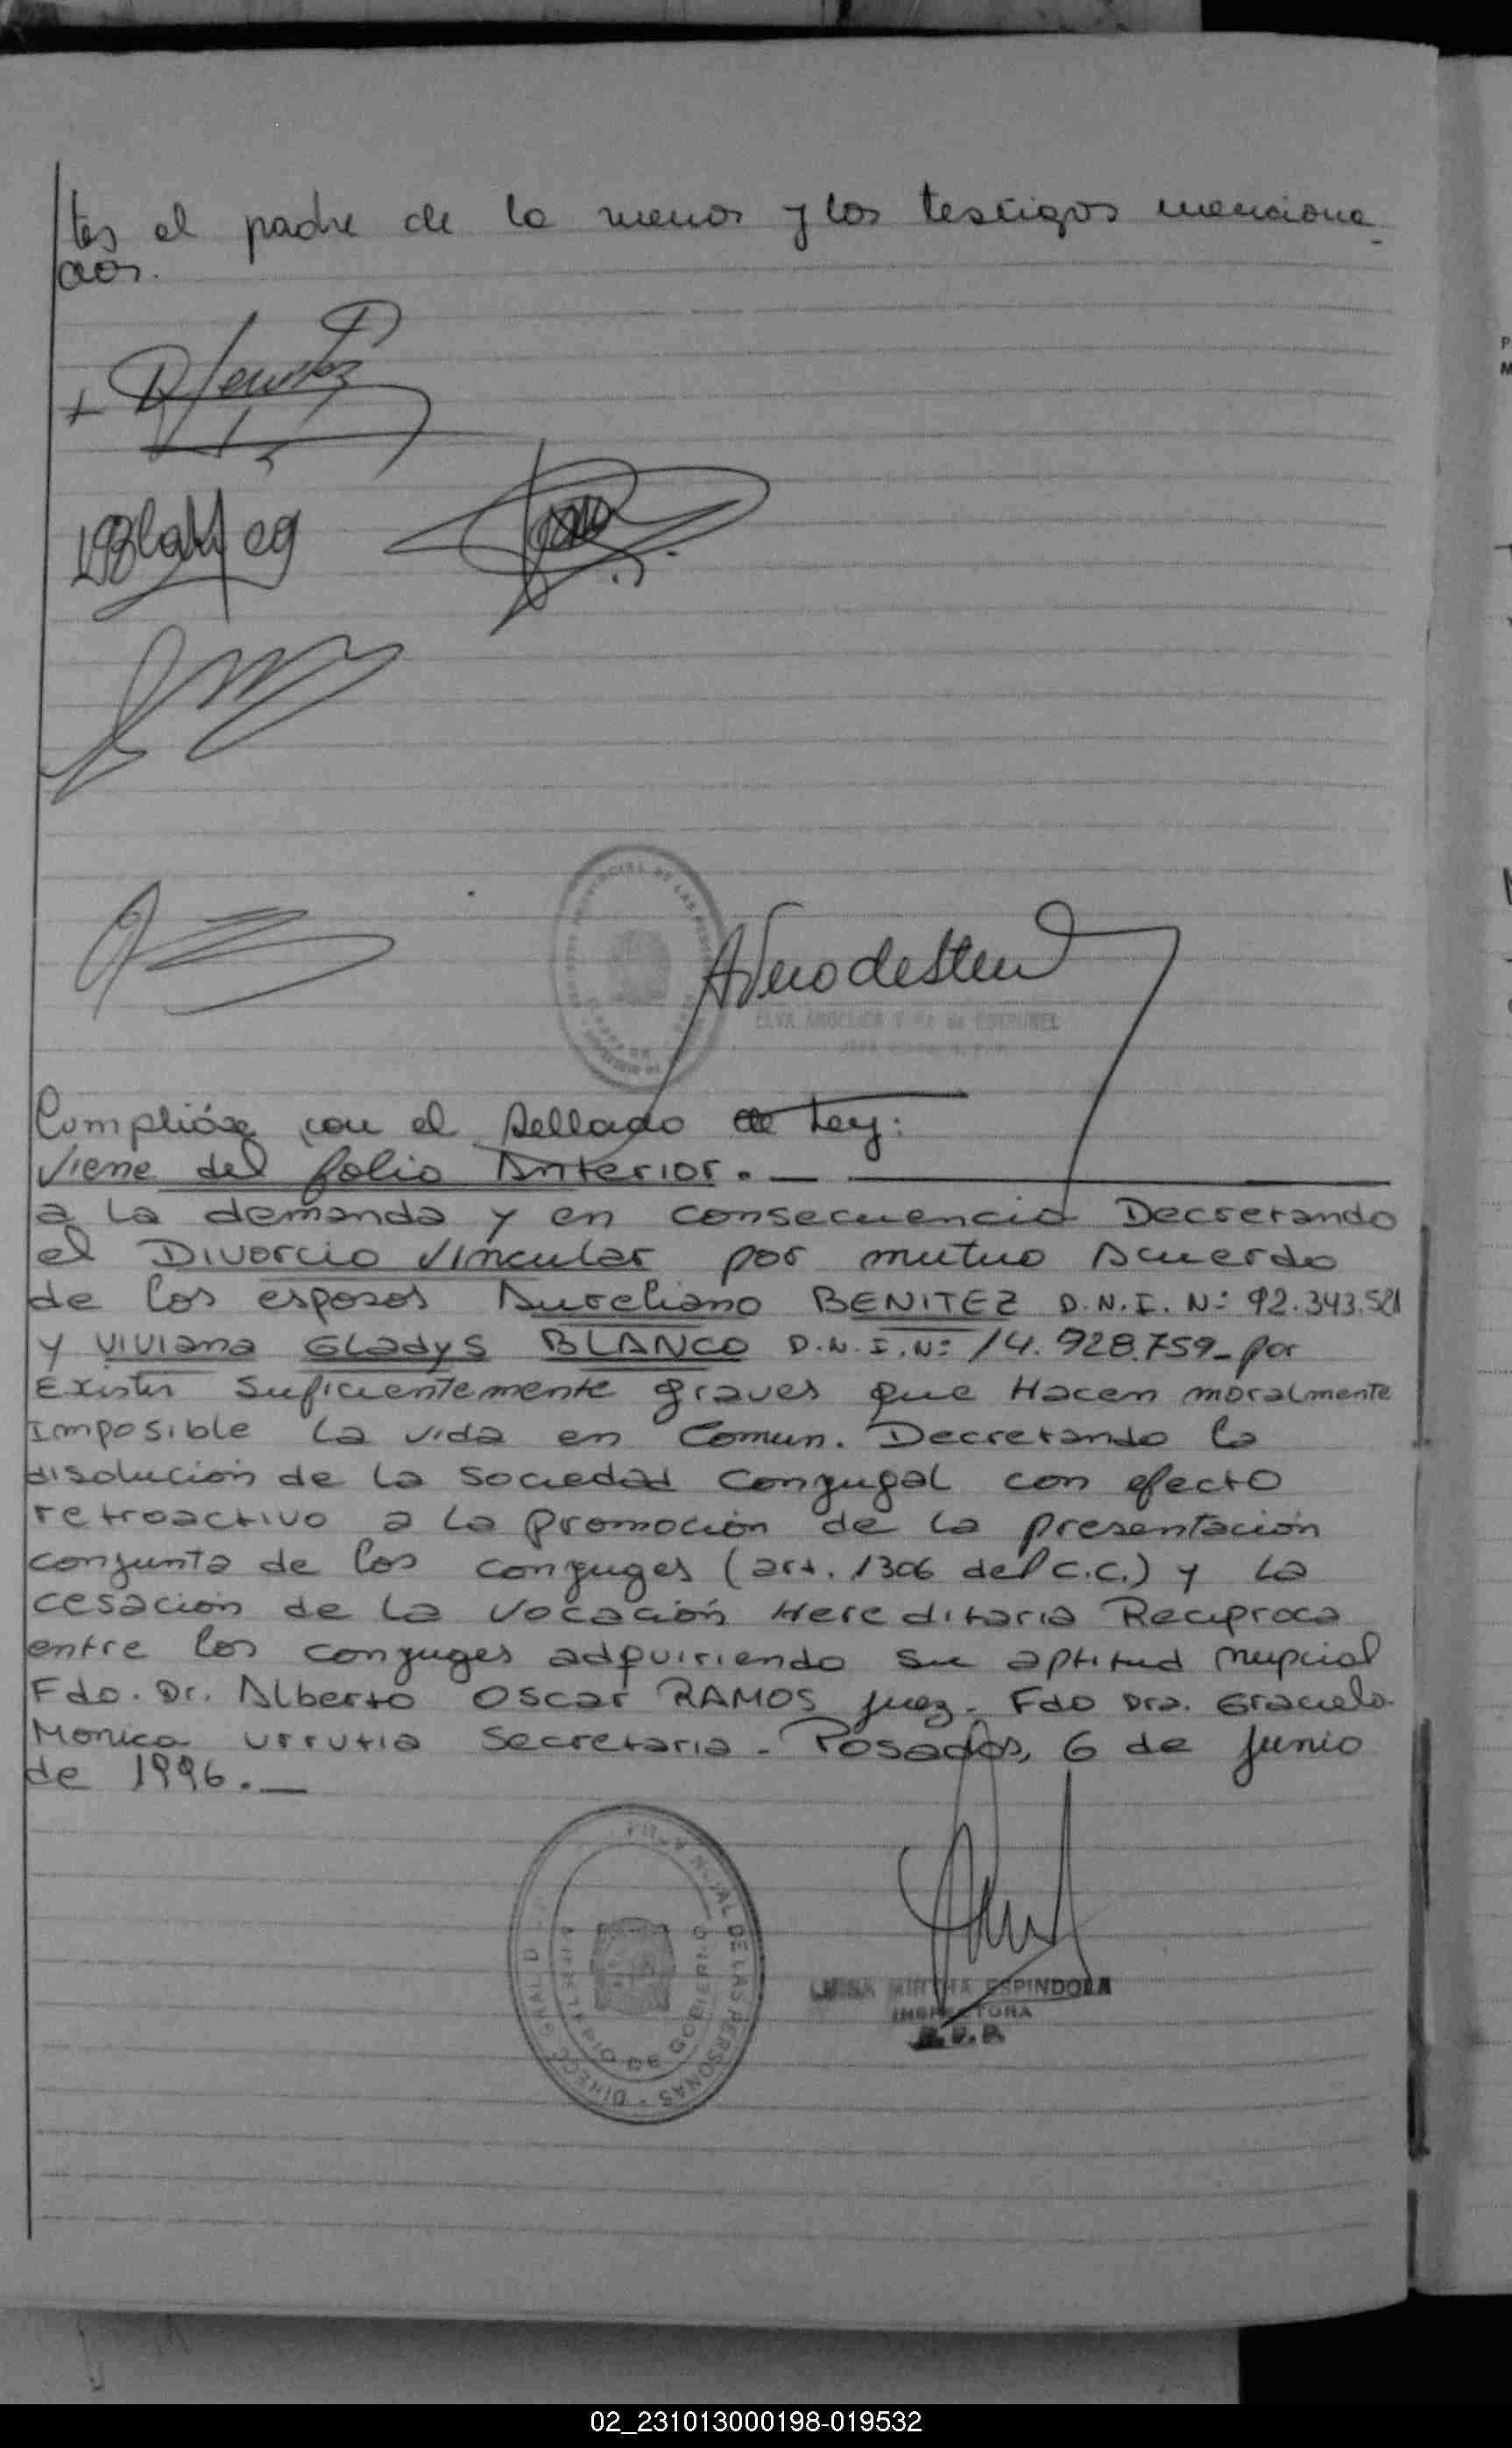 tes el padre de la menor y los testigos menciona_
dos.
Cumplióse con el sellado de Ley:
Viene del folio Anterior._
a la demanda y en consecuencia Decretando
el Divorcio Vincular por mutuo Acuerdo
de los esposos Aureliano BENITEZ D.N.I. Nº 92.343.521
y Viviana Gladys BLANCO D.N.I. Nº 14.928.759_ por
Existir suficientemente graves que Hacen moralmente
Imposible la vida en Comun. Decretando la
disolución de la sociedad conyugal con efecto
retroactivo a la promoción de la presentación
conjunta de los conyuges (art. 1306 del C.C.) y la
cesación de la vocación Hereditaria Reciproca
entre los conyuges adquiriendo su aptitud nupcial
Fdo. Dr. Alberto Oscar RAMOS juez_ Fdo Dra. Graciela
Monica Urrutia Secretaria_ Posadas, 6 de junio
de 1996._
DE LAS PERSONAS - DIRECC
MINISTERIO DE GOBIERNO
LUISA MIRTHA ESPINDOLA
INSPECTORA
R.P.P.
02_231013000198-019532